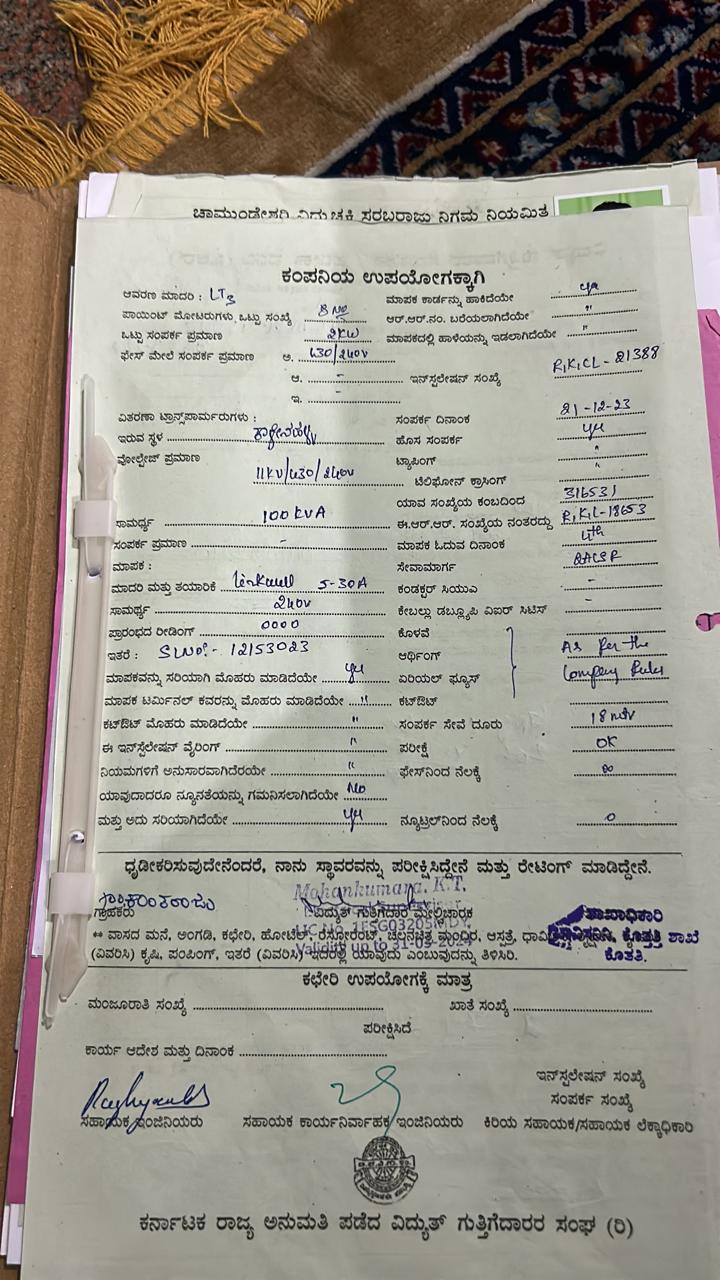 ಚಾಮುಂಡೇಶ್ವರಿ ವಿದ್ಯುಚ್ಛಕ್ತಿ ಸರಬರಾಜು ನಿಗಮ ನಿಯಮಿತ
ಕಂಪನಿಯ ಉಪಯೋಗಕ್ಕಾಗಿ
ಆವರಣ ಮಾದರಿ : LT3 ಮಾಪಕ ಕಾರ್ಡನ್ನು ಹಾಕಿದೆಯೇ yes
ಪಾಯಿಂಟ್ ಮೋಟರುಗಳು, ಒಟ್ಟು ಸಂಖ್ಯೆ 8 No ಆರ್.ಆರ್.ನಂ. ಬರೆಯಲಾಗಿದೆಯೇ "
ಒಟ್ಟು ಸಂಪರ್ಕ ಪ್ರಮಾಣ 2KW ಮಾಪಕದಲ್ಲಿ ಹಾಳೆಯನ್ನು ಇಡಲಾಗಿದೆಯೇ "
ಫೇಸ್ ಮೇಲೆ ಸಂಪರ್ಕ ಪ್ರಮಾಣ ಅ. 430/240V
ಆ. - ಇನ್‌ಸ್ಟಲೇಷನ್ ಸಂಖ್ಯೆ R,K,CL-21388
ಇ. -
ವಿತರಣಾ ಟ್ರಾನ್ಸ್‌ಪಾರ್ಮರುಗಳು : ಸಂಪರ್ಕ ದಿನಾಂಕ 21-12-23
ಇರುವ ಸ್ಥಳ ಹೊಸ ಸಂಪರ್ಕ yes
ವೋಲ್ಟೇಜ್ ಪ್ರಮಾಣ 11KV/430/240V ಟ್ಯಾಪಿಂಗ್ "
ಟೆಲಿಫೋನ್ ಕ್ರಾಸಿಂಗ್ "
ಯಾವ ಸಂಖ್ಯೆಯ ಕಂಬದಿಂದ 316531
ಸಾಮರ್ಥ್ಯ 100 KVA ಈ.ಆರ್.ಆರ್. ಸಂಖ್ಯೆಯ ನಂತರದ್ದು R,K,L-18653
ಸಂಪರ್ಕ ಪ್ರಮಾಣ - ಮಾಪಕ ಓದುವ ದಿನಾಂಕ 4th
ಮಾಪಕ : ಸೇವಾಮಾರ್ಗ
ಮಾದರಿ ಮತ್ತು ತಯಾರಿಕೆ Linkwell 5-30A ಕಂಡಕ್ಟರ್ ಸಿಯುಎ -
ಸಾಮರ್ಥ್ಯ 240V ಕೇಬಲ್ಲು ಡಬ್ಲ್ಯೂಪಿ ವಿಐರ್ ಸಿಟಿಸ್ -
ಪ್ರಾರಂಭದ ರೀಡಿಂಗ್ 0000 ಕೊಳವೆ
ಇತರೆ : SLNo:- 12153023 ಆರ್ಥಿಂಗ್ As Per the
ಮಾಪಕವನ್ನು ಸರಿಯಾಗಿ ಮೊಹರು ಮಾಡಿದೆಯೇ yes ಏರಿಯಲ್ ಫ್ಯೂಸ್ Company Rules
ಮಾಪಕ ಟರ್ಮಿನಲ್ ಕವರನ್ನು ಮೊಹರು ಮಾಡಿದೆಯೇ " ಕಟ್‌ಔಟ್
ಕಟ್‌ಔಟ್ ಮೊಹರು ಮಾಡಿದೆಯೇ " ಸಂಪರ್ಕ ಸೇವೆ ದೂರು 18 mtr
ಈ ಇನ್‌ಸ್ಟಲೇಷನ್ ವೈರಿಂಗ್ " ಪರೀಕ್ಷೆ OK
ನಿಯಮಗಳಿಗೆ ಅನುಸಾರವಾಗಿದೆರಯೇ " ಫೇಸ್‌ನಿಂದ ನೆಲಕ್ಕೆ ∞
ಯಾವುದಾದರೂ ನ್ಯೂನತೆಯನ್ನು ಗಮನಿಸಲಾಗಿದೆಯೇ No
ಮತ್ತು ಅದು ಸರಿಯಾಗಿದೆಯೇ yes ನ್ಯೂಟ್ರಲ್‌ನಿಂದ ನೆಲಕ್ಕೆ 0
ಧೃಡೀಕರಿಸುವುದೇನೆಂದರೆ, ನಾನು ಸ್ಥಾವರವನ್ನು ಪರೀಕ್ಷಿಸಿದ್ದೇನೆ ಮತ್ತು ರೇಟಿಂಗ್ ಮಾಡಿದ್ದೇನೆ.
Mohankumara. K.T.
ಗ್ರಾಹಕರು ವಿದ್ಯುತ್ ಗುತ್ತಿಗೆದಾರ ಮೇಲ್ವಿಚಾರಕ ಶಾಖಾಧಿಕಾರಿ
** ವಾಸದ ಮನೆ, ಅಂಗಡಿ, ಕಛೇರಿ, ಹೋಟೆಲ್, ರೆಸ್ಟೋರೆಂಟ್, ಚಲನಚಿತ್ರ ಮಂದಿರ, ಆಸ್ಪತ್ರೆ, ಕೊತ್ತತ್ತಿ ಶಾಖೆ
Validity up to 31-03-2024
(ವಿವರಿಸಿ) ಕೃಷಿ, ಪಂಪಿಂಗ್, ಇತರೆ (ವಿವರಿಸಿ) ಇದರಲ್ಲಿ ಯಾವುದು ಎಂಬುವುದನ್ನು ತಿಳಿಸಿರಿ. ಕೊತ್ತತ್ತಿ.
ಕಛೇರಿ ಉಪಯೋಗಕ್ಕೆ ಮಾತ್ರ
ಮಂಜೂರಾತಿ ಸಂಖ್ಯೆ ಖಾತೆ ಸಂಖ್ಯೆ
ಪರೀಕ್ಷಿಸಿದೆ
ಕಾರ್ಯ ಆದೇಶ ಮತ್ತು ದಿನಾಂಕ
ಇನ್‌ಸ್ಟಲೇಷನ್ ಸಂಖ್ಯೆ
ಸಂಪರ್ಕ ಸಂಖ್ಯೆ
ಸಹಾಯಕ ಇಂಜಿನಿಯರು ಸಹಾಯಕ ಕಾರ್ಯನಿರ್ವಾಹಕ ಇಂಜಿನಿಯರು ಕಿರಿಯ ಸಹಾಯಕ/ಸಹಾಯಕ ಲೆಕ್ಕಾಧಿಕಾರಿ
ಕರ್ನಾಟಕ ರಾಜ್ಯ ಅನುಮತಿ ಪಡೆದ ವಿದ್ಯುತ್ ಗುತ್ತಿಗೆದಾರರ ಸಂಘ (ರಿ)